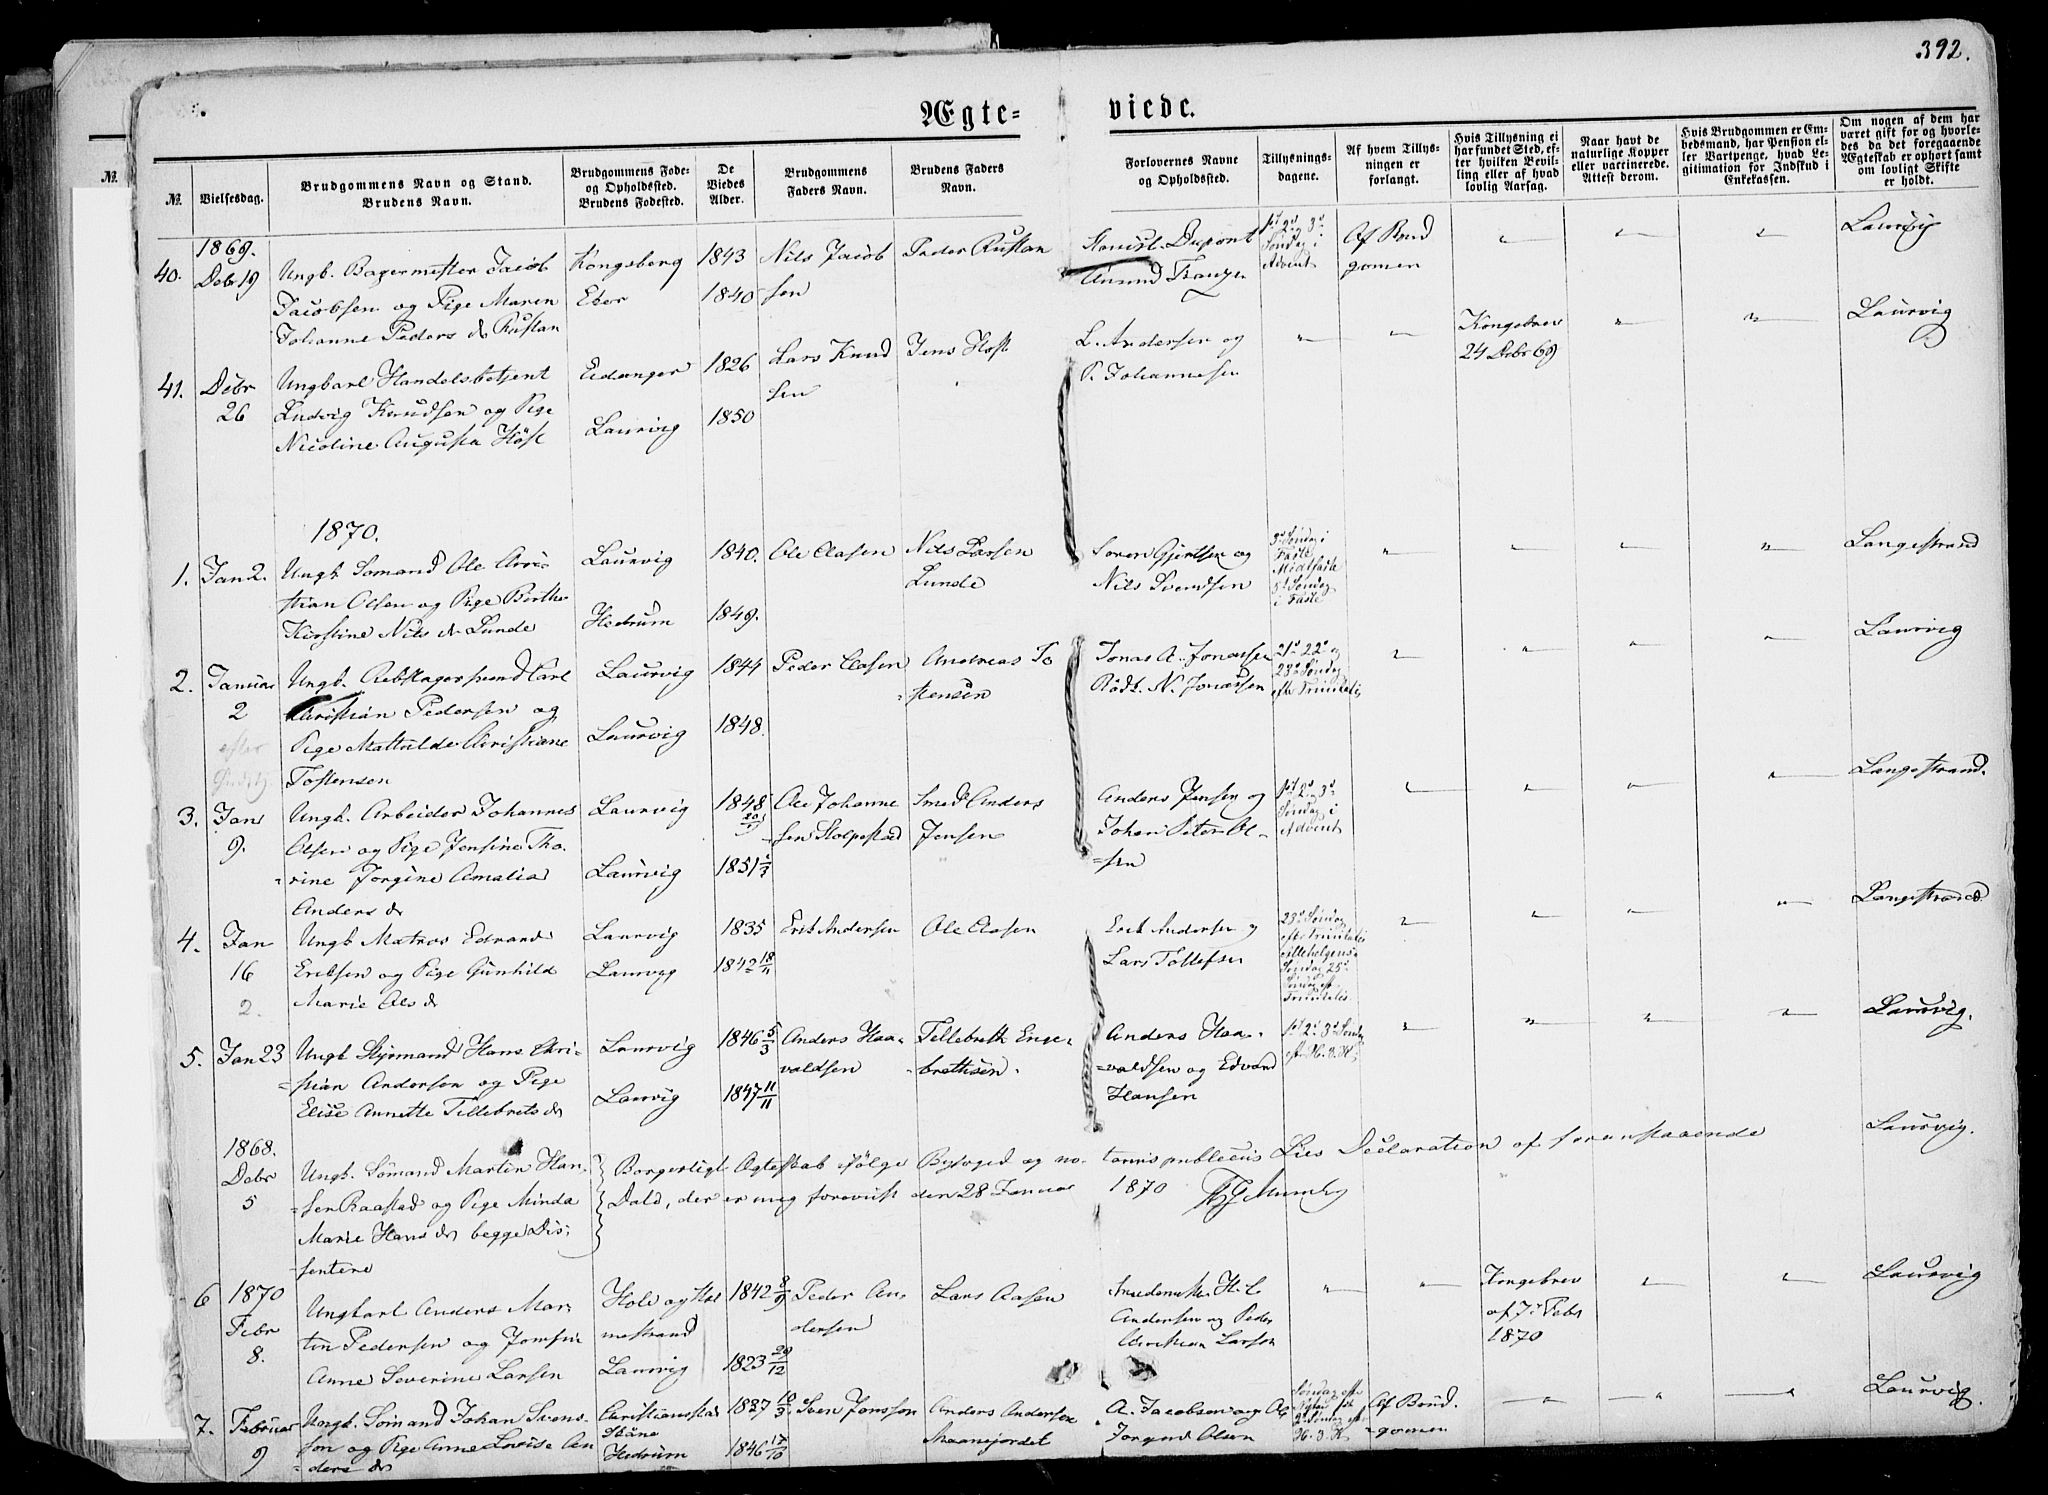 392.
Ægte=
viede.
№
№
Vielsesdag.
Brudgommens Navn og Stand.
Brudens Navn.
Brudgommens Føde-
og Opholdssted.
Brudens Fødested.
De
Viedes
Alder.
Brudgommens
Faders Navn.
Brudens Faders
Navn.
Forlovernes Navne
og Opholdssted.
Tillysnings-
dagene.
Af hvem Tillys-
ningen er
forlangt.
Hvis Tillysning ei
har fundet Sted, ef-
ter hvilken Bevil-
ling eller af hvad
lovlig Aarsag.
Naar havt de
naturlige Kopper
eller vaccinerede.
Attest derom.
Hvis Brudgommen er Em-
bedsmand, har Pension el-
ler Vartpenge, hvad Le-
gitimation for Indskud i
Enkekassen.
Om nogen af dem har
været gift før og hvorle-
des da det foregaaende
Ægteskab er ophørt samt
om lovligt Skifte
er holdt.
1869.
40. Debr 19
Ungk. Bagermester Jacob
Jacobsen og Pige Maren
Johanne Peders dr Rustan
Kongsberg
Eber
1843
1840
Nils Jacob
sen
Peder Rustan
Dupont
1st 2d 3d
Søndag i
Advent
Af Brud
gomen
Laurvig
41. Debr
26
Ungkarl Handelsbetjent
Ludvig Knudsen og Pige
Nicoline Augusta Høst
Eidanger
Laurvig
1826
1850
Lars Knud
sen
Jens Høst
L. Andersen og
P. Johannesen
Kongebrev
24 Debr 69
Laurvig
1870.
1. Jan 2.
Ungk. Sømand Ole Chri-
stian Olsen og Pige Berthe
Kirstine Nils dr Lunde
Laurvig
Hedrum
1840.
1849.
Ole Olasen
Nils Larsen
Lunde
Søren Gjertsen og
Nils Svendsen
3d Søndag i
Faste
Midfaste
5d Søndag
i Faste
Langestrand
2. Januar
2
Ungk. Rebslagersvend Carl
Christian Pedersen og
Pige Mathilde Christiane
Tostensen
Laurvig
Laurvig
1844
1848.
Peder Olasen
Andreas To
stensen
Jonas A. Jonassen
Rødt. N. Jonassen
21d 22d og
23d Søndag
eft Trinitatis
Laurvig
3. Jan
9.
Ungk. Arbeider Johannes
Olsen og Pige Jensine Tho-
rine Jørgine Amalia
Anders dr
Laurvig
Laurvig
1848
1851
Ole Johanne
sen Stolpestad
Smed Anders
Jensen
Anders Jensen og
Johan Peter Ol-
sen
1st 2d 3d
Søndag i
Advent
Langestrand.
4. Jan
16
2.
Ungk Matros Edvard
Eriksen og Pige Gunhild
Marie Ols dr
Laurvig
Laurvig
1835
1842 18/11
Erik Andersen
Ole Olasen
Erik Andersen og
Lars Tollefsen
23d Søndag
eft Trinitatis
Allehelgens
Søndag 25d
Søndag eft
Trinitatis
Langestrand
5. Jan 23
Ungk Styrmand Hans Chri-
stian Andersen og Pige
Elise Annette Tillebrets dr
Laurvig
Laurvig
1846 5/3
1847 11/11
Anders Haa-
valdsen
Tillebreth Enge-
brethsen.
Anders Haa-
valdsen og Edvard
Hansen
1st 2d 3d Sønd
eft H. 3. K.
Laurvig.
1868.
Debr
5
Ungk. Sømand Martin Han-
sen Raastad og Pige Minda
Marie Hans dr begge Dis-
sentere
Borgerligt Ægteskab ifølge Byfoged og no-
tarius publicus Lies Declaration af foranstaaende
Dato, der er mig forevist den 28 Januar
1870
Laurvig.
6 1870
Febr
8.
Ungkarl Anders Mar
tin Pedersen og Jomfru
Anne Severine Larsen
Hole og Hol
mestrand
Laurvig
1842 8/9
1823 29/12
Peder An
dersen
Lars Aasen
Andersen og Peder
Christian Larsen
Kongebrev
af 7d Febr
1870
Laurvig
7. Februar
9
Ungk. Sømand Johan Svens-
son og Pige Anne Lovise An
ders dr
Christianstad
Skåne
Hedrum
1837 10/3
1846 17/10
Sven Jonsson
Anders Andersen
Maanejordet
A. Jacobsen og
Jørgen Olsen
Søndag eft
Nytaar 1st
2d Søndag eft
H. 3. K
Af Brud-
gomen
Laurvig.